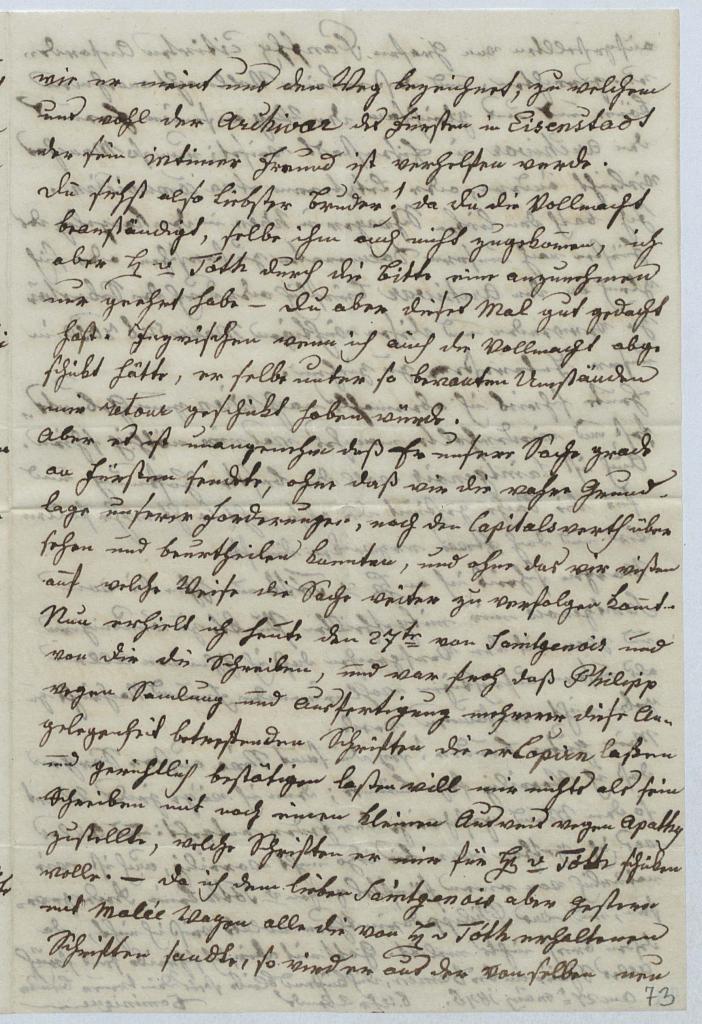 wie er meint uns den Weg bezeichnet, zu welchem
uns wohl der Archivar des Fürsten in Eisenstadt
der sein intimer Freund ist verhelfen werde.
Du siehst also liebster Bruder! da Du die Vollmacht
beanständigt, selbe ihm auch nicht zugekommen, ich
aber H v Tóth durch die Bitte eine anzunehmen
nur geehrt habe – Du aber dieses Mal gut gedacht
hast. Inzwischen wenn ich auch die Vollmacht abge
schikt hätte, er selbe unter so bewanten Umständen
mir retour geschikt haben würde.
Aber es ist unangenehm daß Er unsere Sache grade
an Fürsten sendete, ohne daß wir die wahre Grund-
lage unserer Forderungen, noch den Capitalswerth über
sehen und beurtheilen konnten, und ohne das wir wißen
auf welche Weise die Sache weiter zu verfolgen kommt.
Nun erhielt ich heute den 27te von Saintgenois und
von Dir die Schreiben, und war froh daß Philipp
wegen Samlung und Ausfertigung mehrerer diese An-
gelegenheit betreffenden Schriften die er Copiren laßen
und gerichtlich bestätigen laßen will mir nichts als sein
Schreiben mit noch einen kleinen Ausweis wegen Apathy
zustellte, welche Schriften er mir für H v Tóth schiken
wolle. – Da ich dem lieben Saintgenois aber gestern
mit Malle Wagen alle die von H v Tóth erhaltenen
Schriften sandte, so wird er aus der von selben neu
73